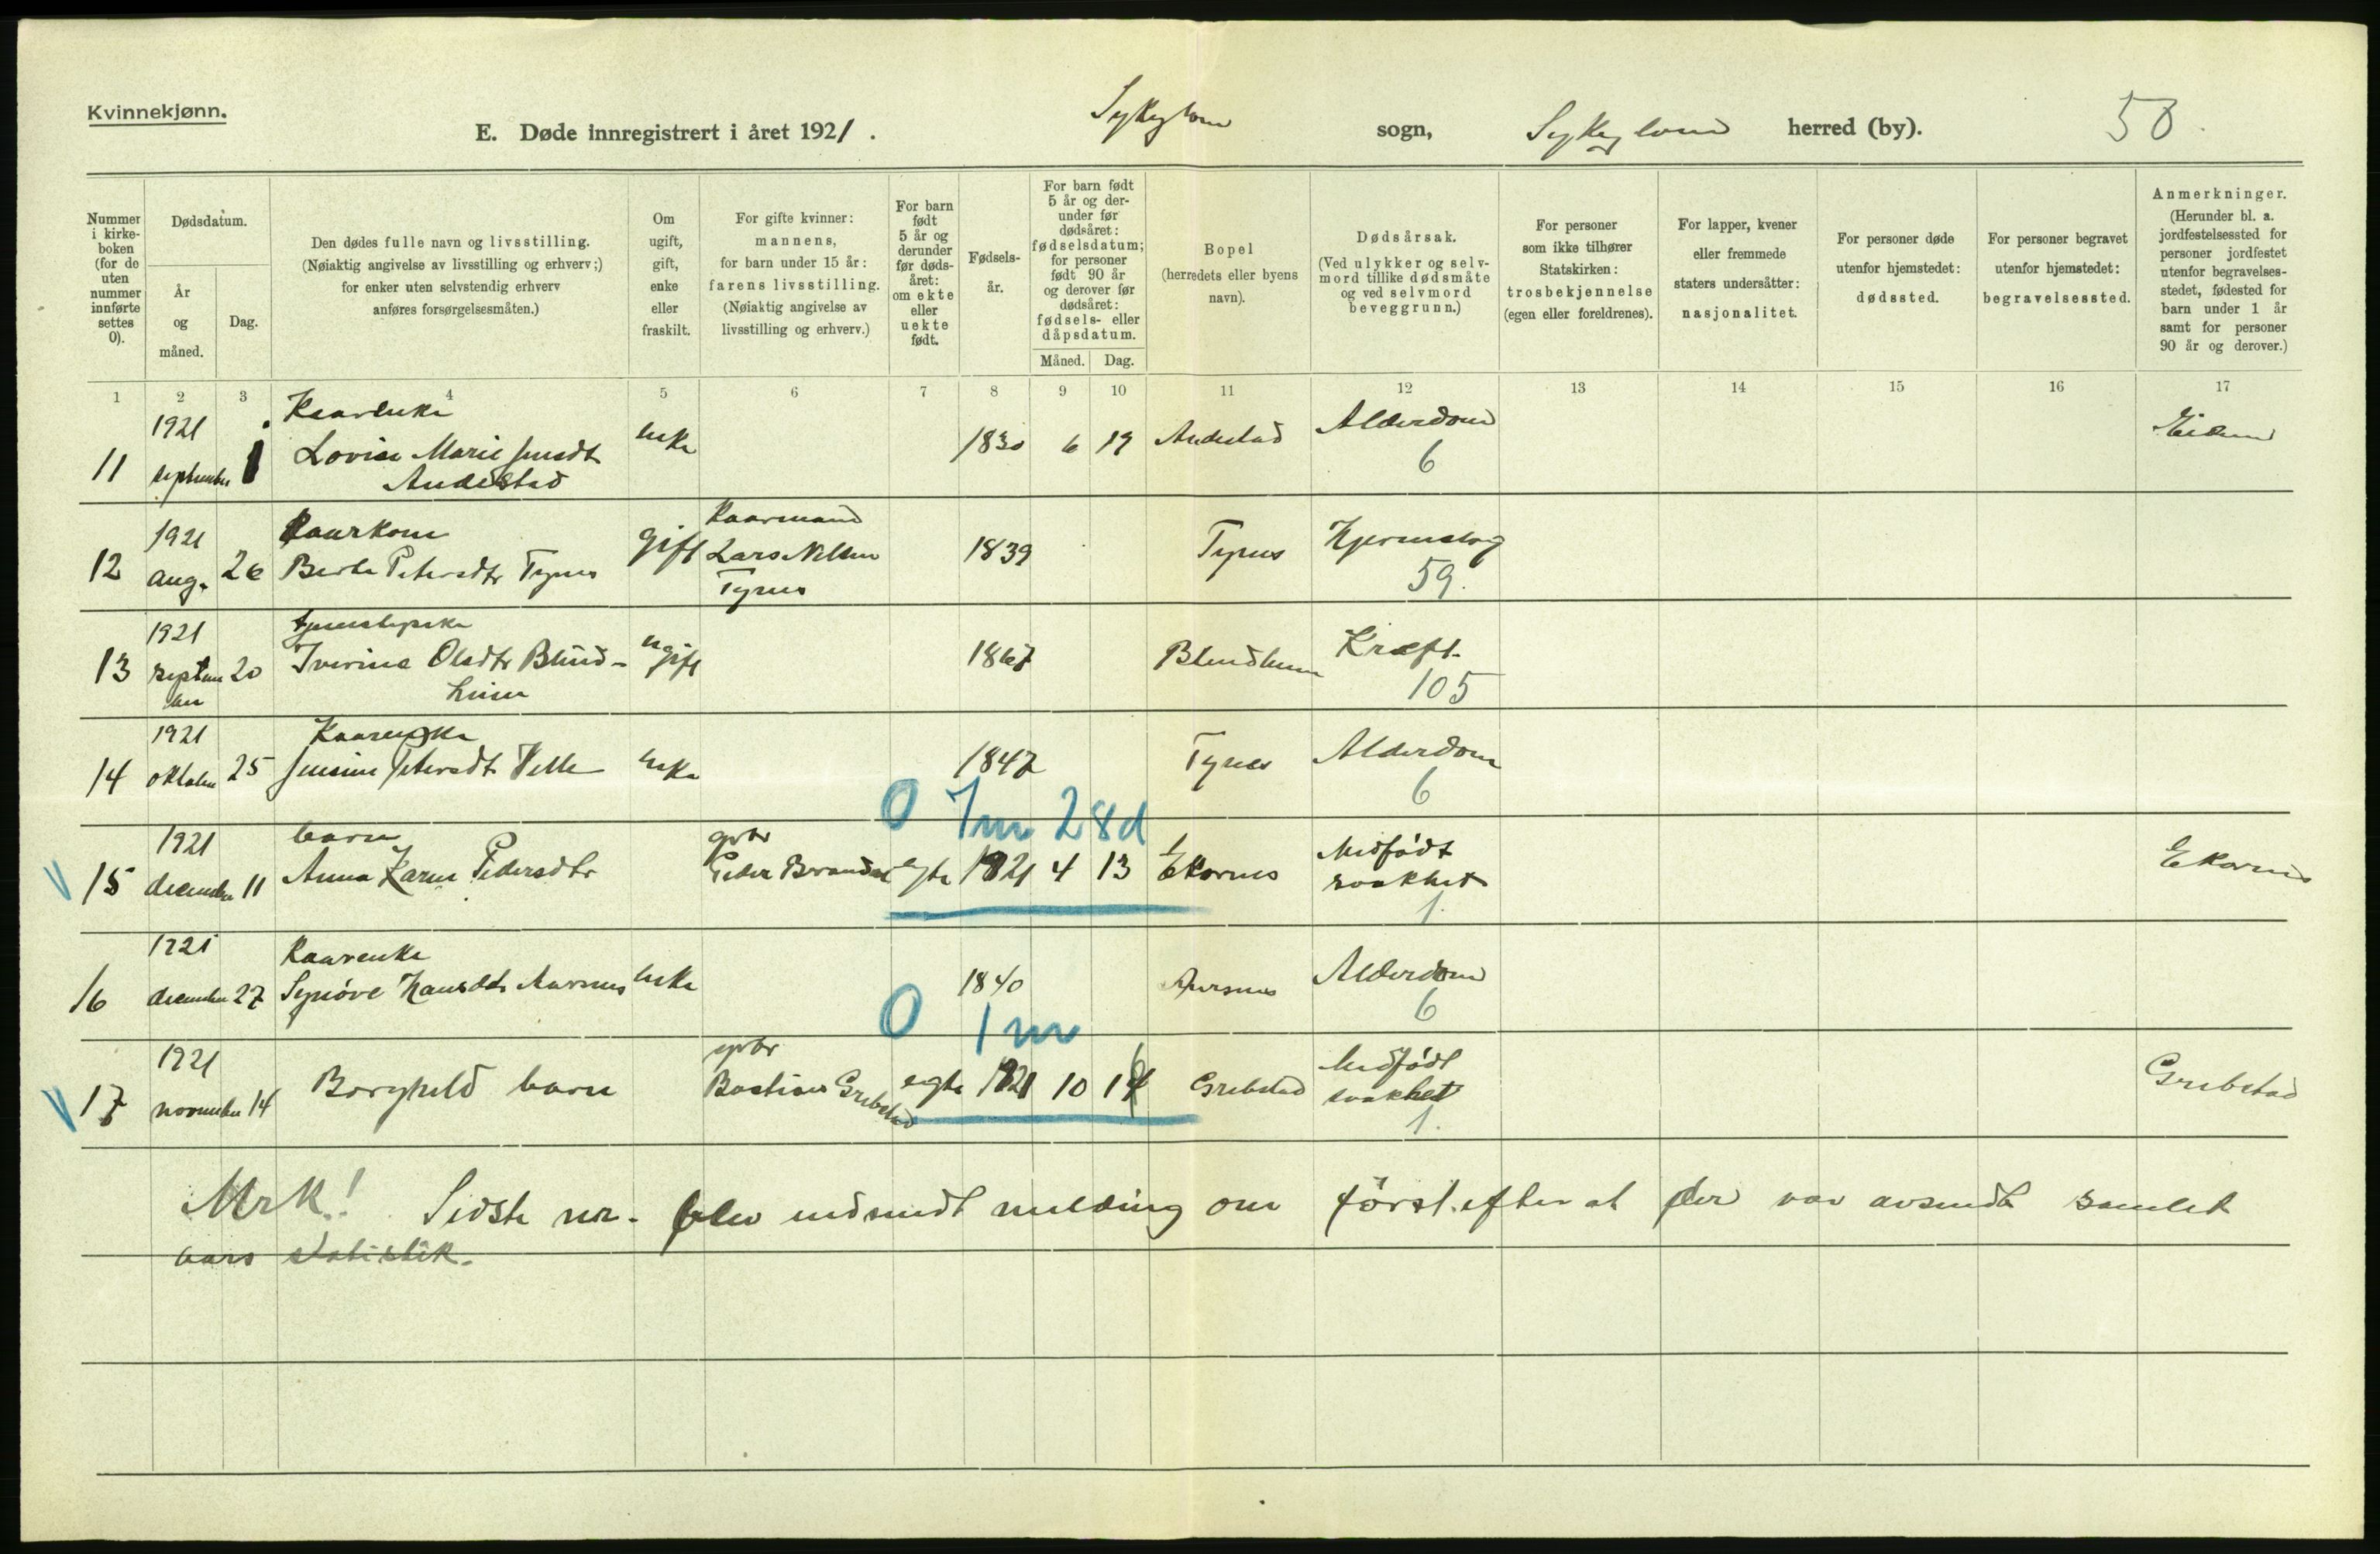 Kvinnekjønn.
E. Døde innregistrert i året 1921. Sykylven sogn, Sykylven herred (by). 58
Nummer i kirkeboken (for de uten nummer innførte settes 0).
Dødsdatum.
År og måned.
Dag.
Den dødes fulle navn og livsstilling.
(Nøiaktig angivelse av livsstilling og erhverv;)
for enker uten selvstendig erhverv
anføres forsørgelsesmåten.)
Om ugift, gift, enke eller fraskilt.
For gifte kvinner: mannens, for barn under 15 år: farens livsstilling.
(Nøiaktig angivelse av livsstilling og erhverv.)
For barn født 5 år og derunder før dødsåret: om ekte eller uekte født.
Fødselsår.
For barn født 5 år og derunder før dødsåret: fødselsdatum; for personer født 90 år og derover før dødsåret: fødsels- eller dåpsdatum.
Måned. Dag.
Bopel
(herredets eller byens navn).
Dødsårsak.
(Ved ulykker og selvmord tillike dødsmåte og ved selvmord beveggrunn.)
For personer som ikke tilhører Statskirken: trosbekjennelse (egen eller foreldrenes).
For lapper, kvener eller fremmede staters undersåtter: nasjonalitet.
For personer døde utenfor hjemstedet: dødssted.
For personer begravet utenfor hjemstedet: begravelsessted.
Anmerkninger.
(Herunder bl. a. jordfestelsessted for personer jordfestet utenfor begravelsesstedet, fødested for barn under 1 år samt for personer 90 år og derover.)
1 2 3 4 5 6 7 8 9 10 11 12 13 14 15 16 17
1921 Kaarenke
11 september 1 Lovise Marie Jensdt enke 1830 6 19 Andestad Alderdom
Andestad 6
1921 Kaarkone Kaarmand
12 aug. 26 Berte Petersdtr Tynes gift Lars Nilsen 1839 Tynes
Tynes 59.
1921
13 septem 20 Iverine Olsdtr Blind- ugift 1867 Blindheim Kræft.
ber heim 105
1921 Kaarenke
14 oktober 25 Jensine Petersdt Velle enke 1847 Tynes Alderdom
6
0 7m 28d
1921 barn gbr Medfødt
V 15 december 11 Anna Karen Pedersdtr Peder Brandal egte 1921 4 13 Ekornes svakhet Ekornes
1.
1921 Kaarenke
16 december 27 Synöve Hansdt Aursnes enke 1840 Aursnes Alderdom
6
0 1m
1921 gbr Medfödt
V 17 november 14 Borghild barn Bastian Grebstad egte 1921 10 14 Grebstad svakhet Grebstad
1.
Mrk! Sidste nr. blev indsendt melding om först efter at der var avsendt samlet
aars statistik.